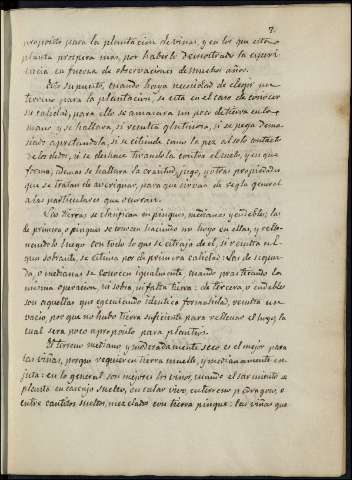 7.
proposito para la plantacion de viñas, y en los que esta
planta prospera mas, por haberlo demostrado la esperi-
encia en fuerza de observaciones de muchos años.
Esto supuesto, cuando haya necesidad de elegir un
terreno para la plantacion, se está en el caso de conocer
su calidad, para ello se amasara un poco de tierra en la
mano, y se hallara si resulta glutinosa, si se pega dema-
siado apretandola, si se estiende como la pez al solo contacto
de los dedos, ni se deshace tirandola contra el suelo, y en que
forma; demas se hallara la crasitud, jugo, y otras propiedades
que se tratan de averiguar, para que sirvan de regla general
a las particulares que ocurran.
Las tierras se clasifican en pingues, medianas y endebles; las
de primera, o pingues se conocen haciendo un hoyo en ellas, y relle-
nandolo luego con todo lo que se estrajo de el, si resulta al-
gun sobrante, se estima por de primera calidad: las de segun-
da, o medianas se conocen igualmente, cuando practicando la
misma operacion, ni sobra, ni falta tierra: de tercera, o endebles
son aquellas que ejecutando identica formalidad, resulta un
vacio por que no hubo tierra suficiente para rellenar el hoyo, la
cual sera poco aproposito para plantios.
El terreno mediano, y moderadamente seco es el mejor para
las viñas, porque requieren tierra muelle, y medianamente en-
juta: en lo general son mejores los vinos, cuando el sarmiento se
planta en cascajo suelto, en calar vivo, en terreno pedragoso, o
entre cantitos sueltos, mezclados con tierra pingue: las viñas que